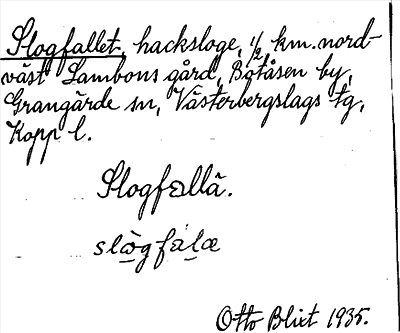 Slogfallet, hacksloge, 1/2 km. nord-
väst Lambons gård, Botåsen by,
Grangärde sn, Västerbergslags tg,
Kopp l.
Slogfallä.
slògfalæ
Otto Blixt 1935.